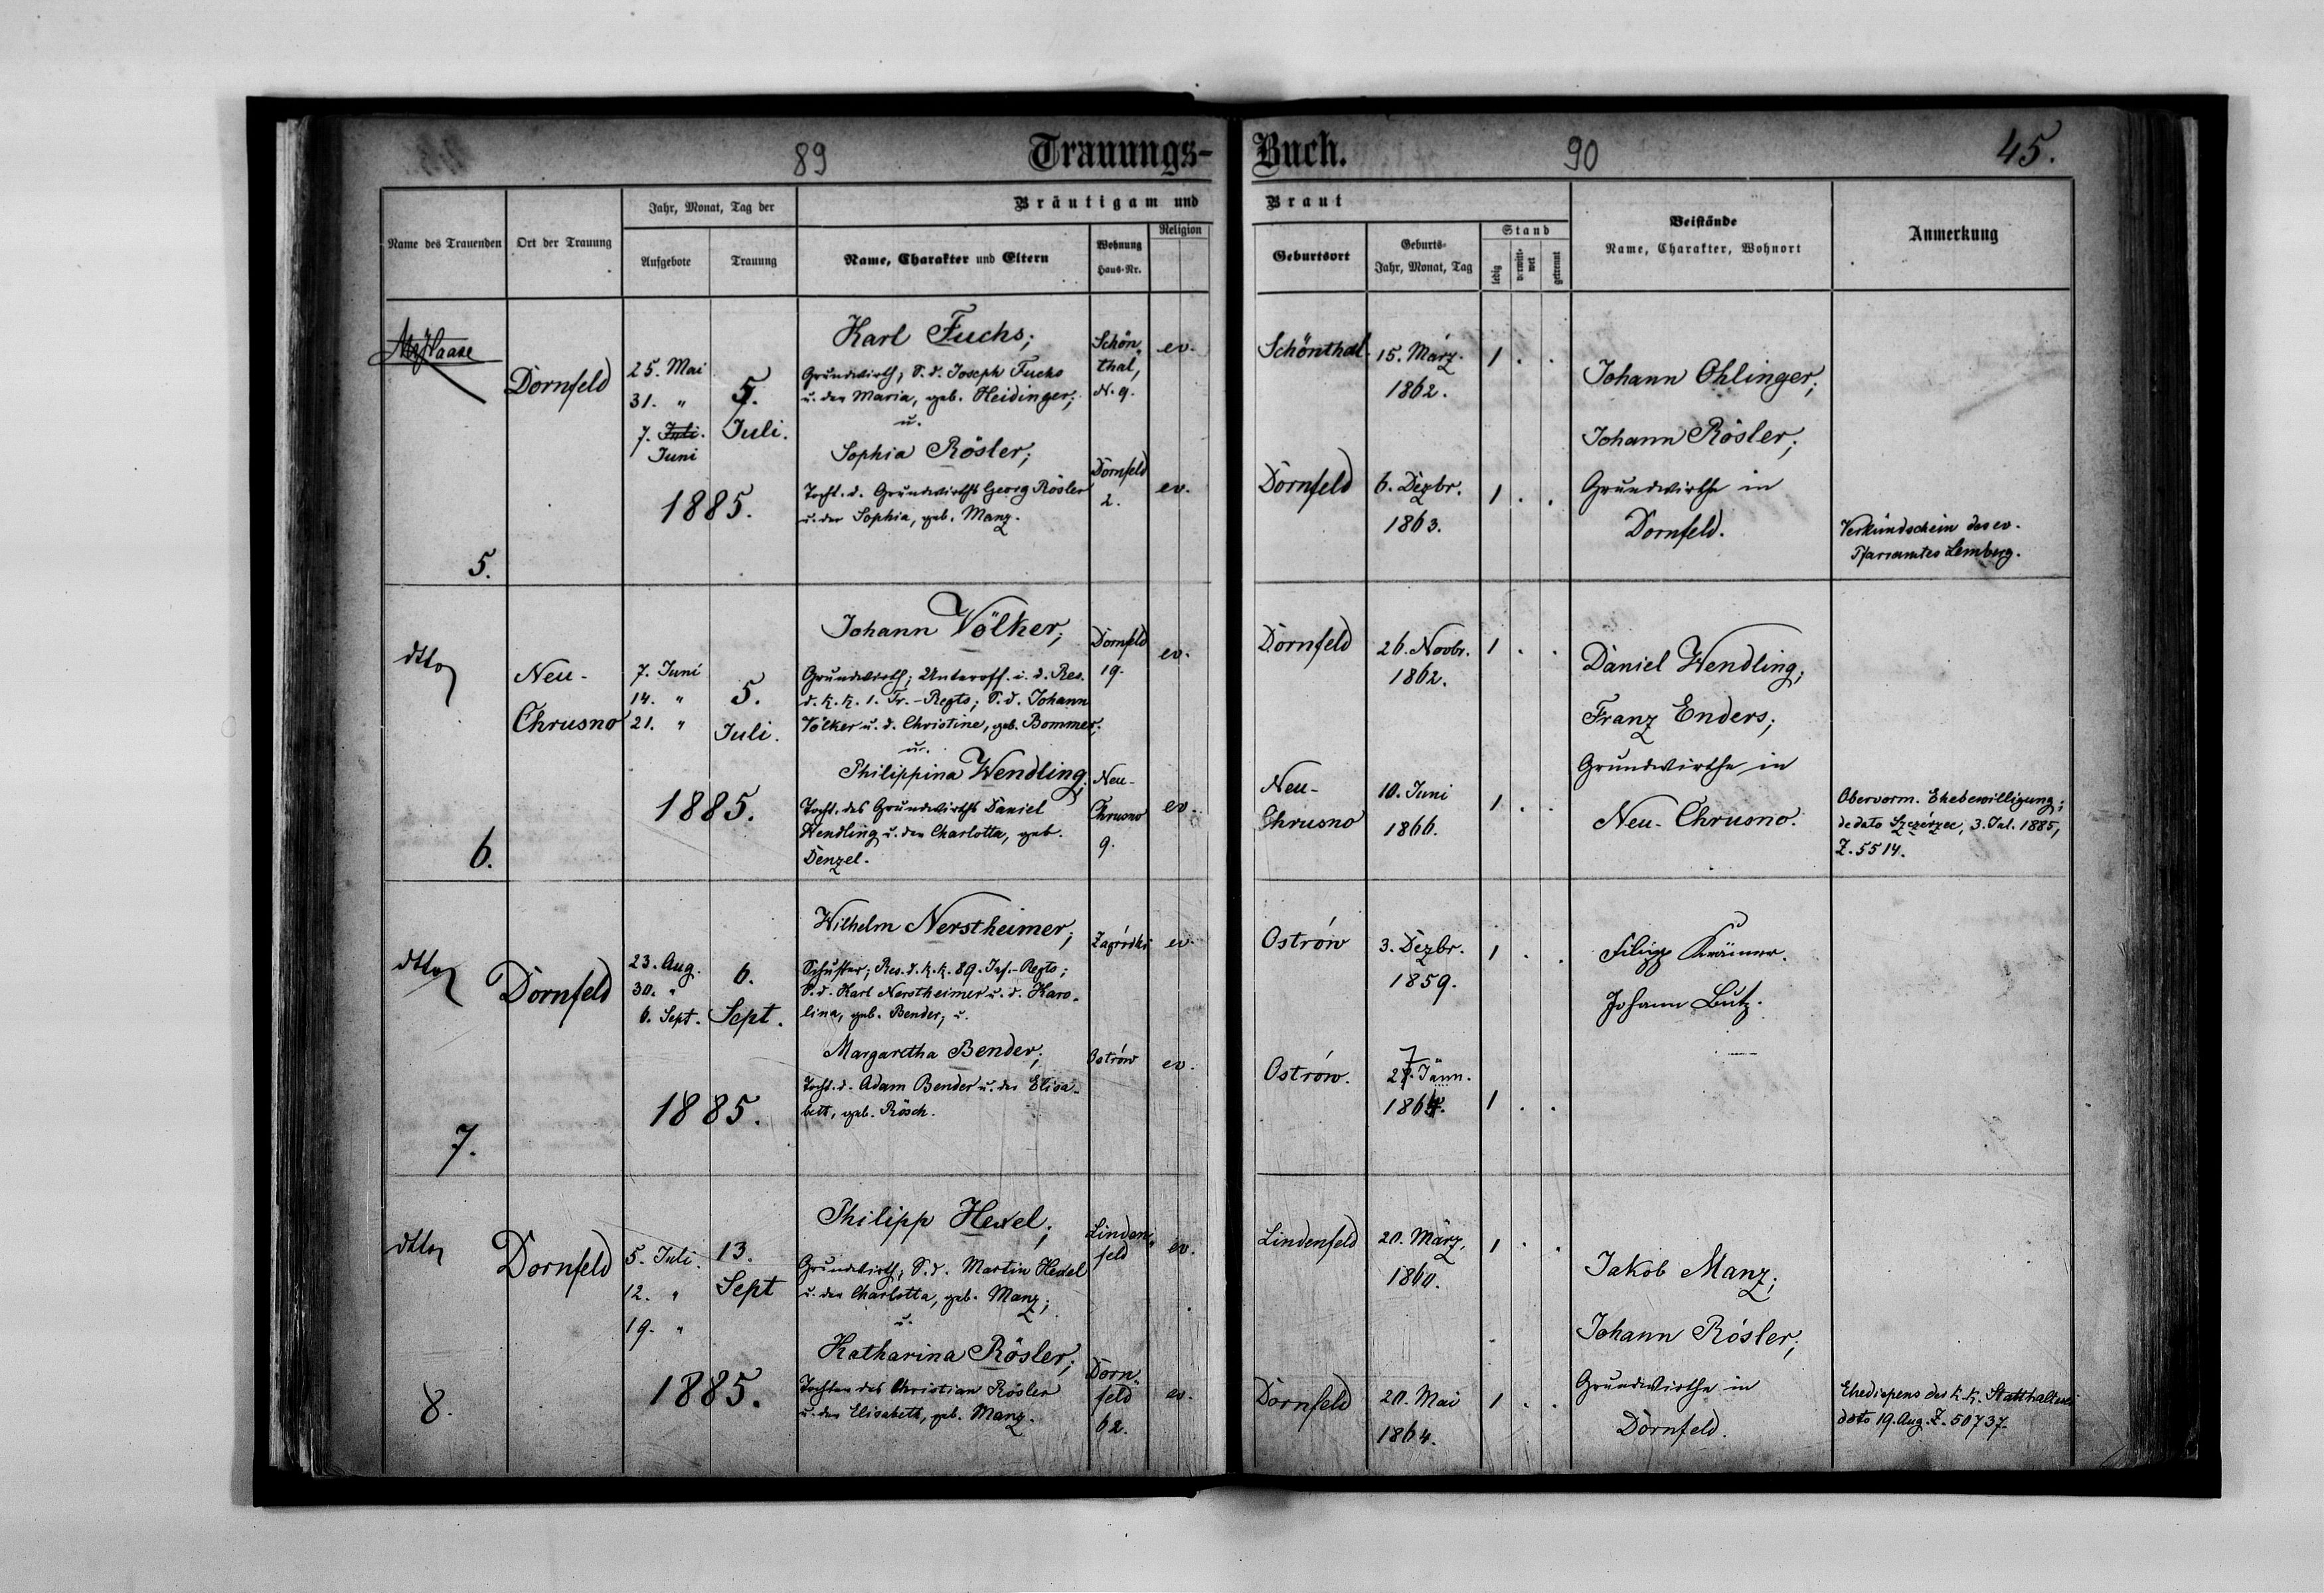 89
Trauungs-
Buch.
90
45.
Name des Trauenden
Ort der Trauung
Jahr, Monat, Tag der
Aufgebote
Trauung
Bräutigam und
Braut
Name, Charakter und Eltern
Wohnung
Haus-Nr.
Religion
Geburtsort
Geburts-
Jahr, Monat, Tag
Stand
ledig
verwitt-
wet
getrennt
Beistände
Name, Charakter, Wohnort
Anmerkung
Haase
Dornfeld
25. Mai
31. "
7. Juli.
Juni
5.
Juli.
1885.
Karl Fuchs;
Grundwirth; S. d. Joseph Fuchs
u. der Maria, geb. Heidinger;
u.
Sophia Rösler;
Tocht. d. Grundwirths Georg Rösler
u. der Sophia, geb. Manz.
Schön-
thal,
N. 9.
ev.
Dornfeld
2.
ev.
Schönthal.
15. März.
1862.
1 . .
Dornfeld
6. Dezbr.
1863.
1 . .
Johann Ohlinger;
Johann Rösler;
Grundwirthe in
Dornfeld.
Verkündschein des ev.
Pfarramtes Lemberg.
5.
dtto
Neu-
Chrusno
7. Juni
14. "
21. "
5.
Juli.
1885.
Johann Völker;
Grundwirth; Unteroff. i. d. Res.
d. k. k. 1. Fr.-Regts; S. d. Johann
Völker u. d. Christine, geb. Bommer;
u.
Philippina Wendling;
Tocht. des Grundwirths Daniel
Wendling u. der Charlotta, geb.
Denzel.
Dornfeld
19.
ev.
Neu-
Chrusno
9.
ev.
Dornfeld
26. Novbr.
1862.
1 . .
Neu-
Chrusno
10. Juni
1866.
1 . .
Daniel Wendling;
Franz Enders;
Grundwirthe in
Neu-Chrusno.
Obervorm. Ehebewilligung;
de dato Szczérzec, 3. Jul. 1885,
Z. 5514.
6.
dtto
Dornfeld
23. Aug.
30. "
6. Sept.
6.
Sept.
1885.
Wilhelm Nerstheimer;
Schuster; Res. d. k. k. 89. Inf.-Regts;
S. d. Karl Nerstheimer u. d. Karo-
lina, geb. Bender; u.
Margaretha Bender;
Tocht. d. Adam Bender u. der Elisa-
beth, geb. Rösch.
Zagródki
ev.
Ostrów
ev.
Ostrów
3. Dezbr.
1859.
1 . .
Ostrów.
27. Jänn.
1864.
1 . .
Filipp Krämer.
Johann Butz.
7.
dtto
Dornfeld
5. Juli.
12. "
19. "
13.
Sept
1885.
Philipp Hexel;
Grundwirth; S. d. Martin Hexel
u. der Charlotta, geb. Manz;
u.
Katharina Rösler;
Tochter des Christian Rösler
u. der Elisabeth, geb. Manz.
Linden-
feld
ev.
Dorn-
feld
62.
ev.
Lindenfeld
20. März,
1860.
1 . .
Dornfeld
20. Mai
1864.
1 . .
Jakob Manz;
Johann Rösler;
Grundwirthe in
Dornfeld.
Ehedispens der k. k. Statthalterei
dato 19. Aug. Z. 50737.
8.